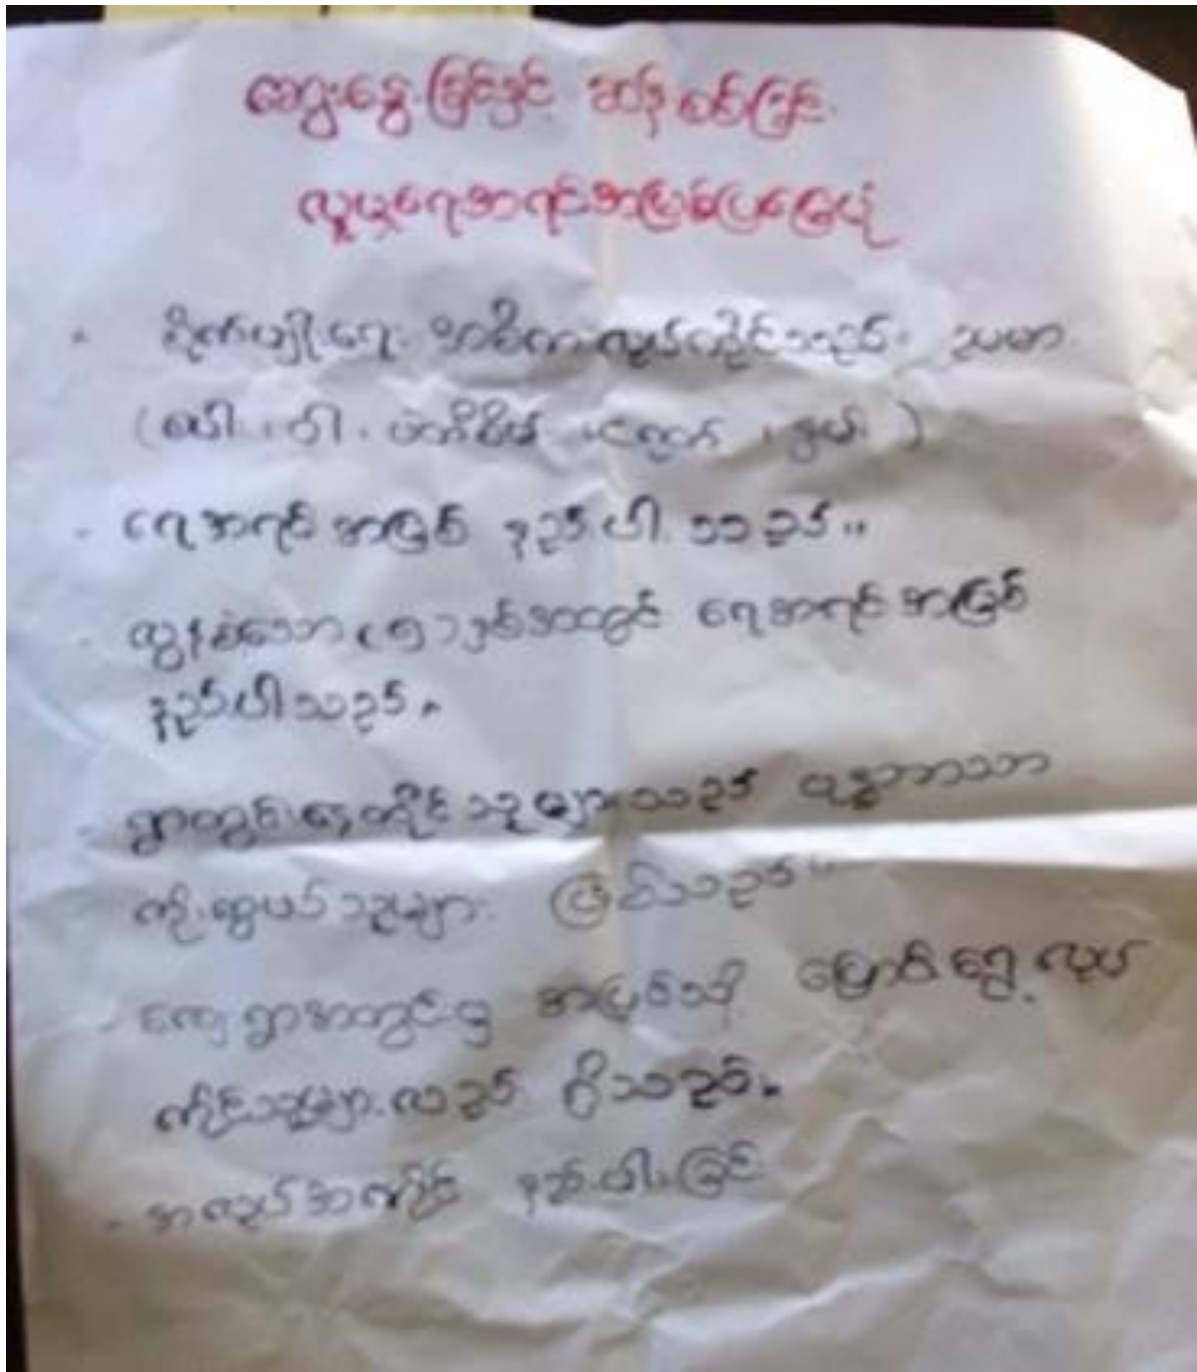 ဆွေးနွေးခြင်းနှင့် ဆန်းစစ်ခြင်း
လူမှုရေးအရင်းအမြစ်ပြမြေပုံ
- စိုက်ပျိုးရေး အဓိကလုပ်ကိုင်သည်။ ဥပမာ
( စပါး ၊ ဝါ ၊ ပဲတီစိမ်း ၊ ငရုတ် ၊ နွမ်း )
- ရေအရင်းအမြစ် ရှည်းပါးသည်။
- လွန်ခဲ့သော (၅) နှစ်အတွင်း ရေအရင်းအမြစ်
နည်းပါးသည်။
- ရွာတွင်းနေထိုင်သူများသည် ဗုဒ္ဓဘာသာ
ကိုးကွယ်သူများ ဖြစ်သည်။
- ကျေးရွာအတွင်းမှ အခြားသို့ ပြောင်းရွှေ့လုပ်
ကိုင်သူများလည်း ရှိသည်။
- အလုပ်အကိုင် ရှည်းပါးခြင်း